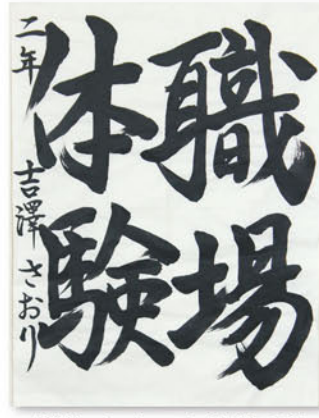 職場
体験
二年 吉澤さおり